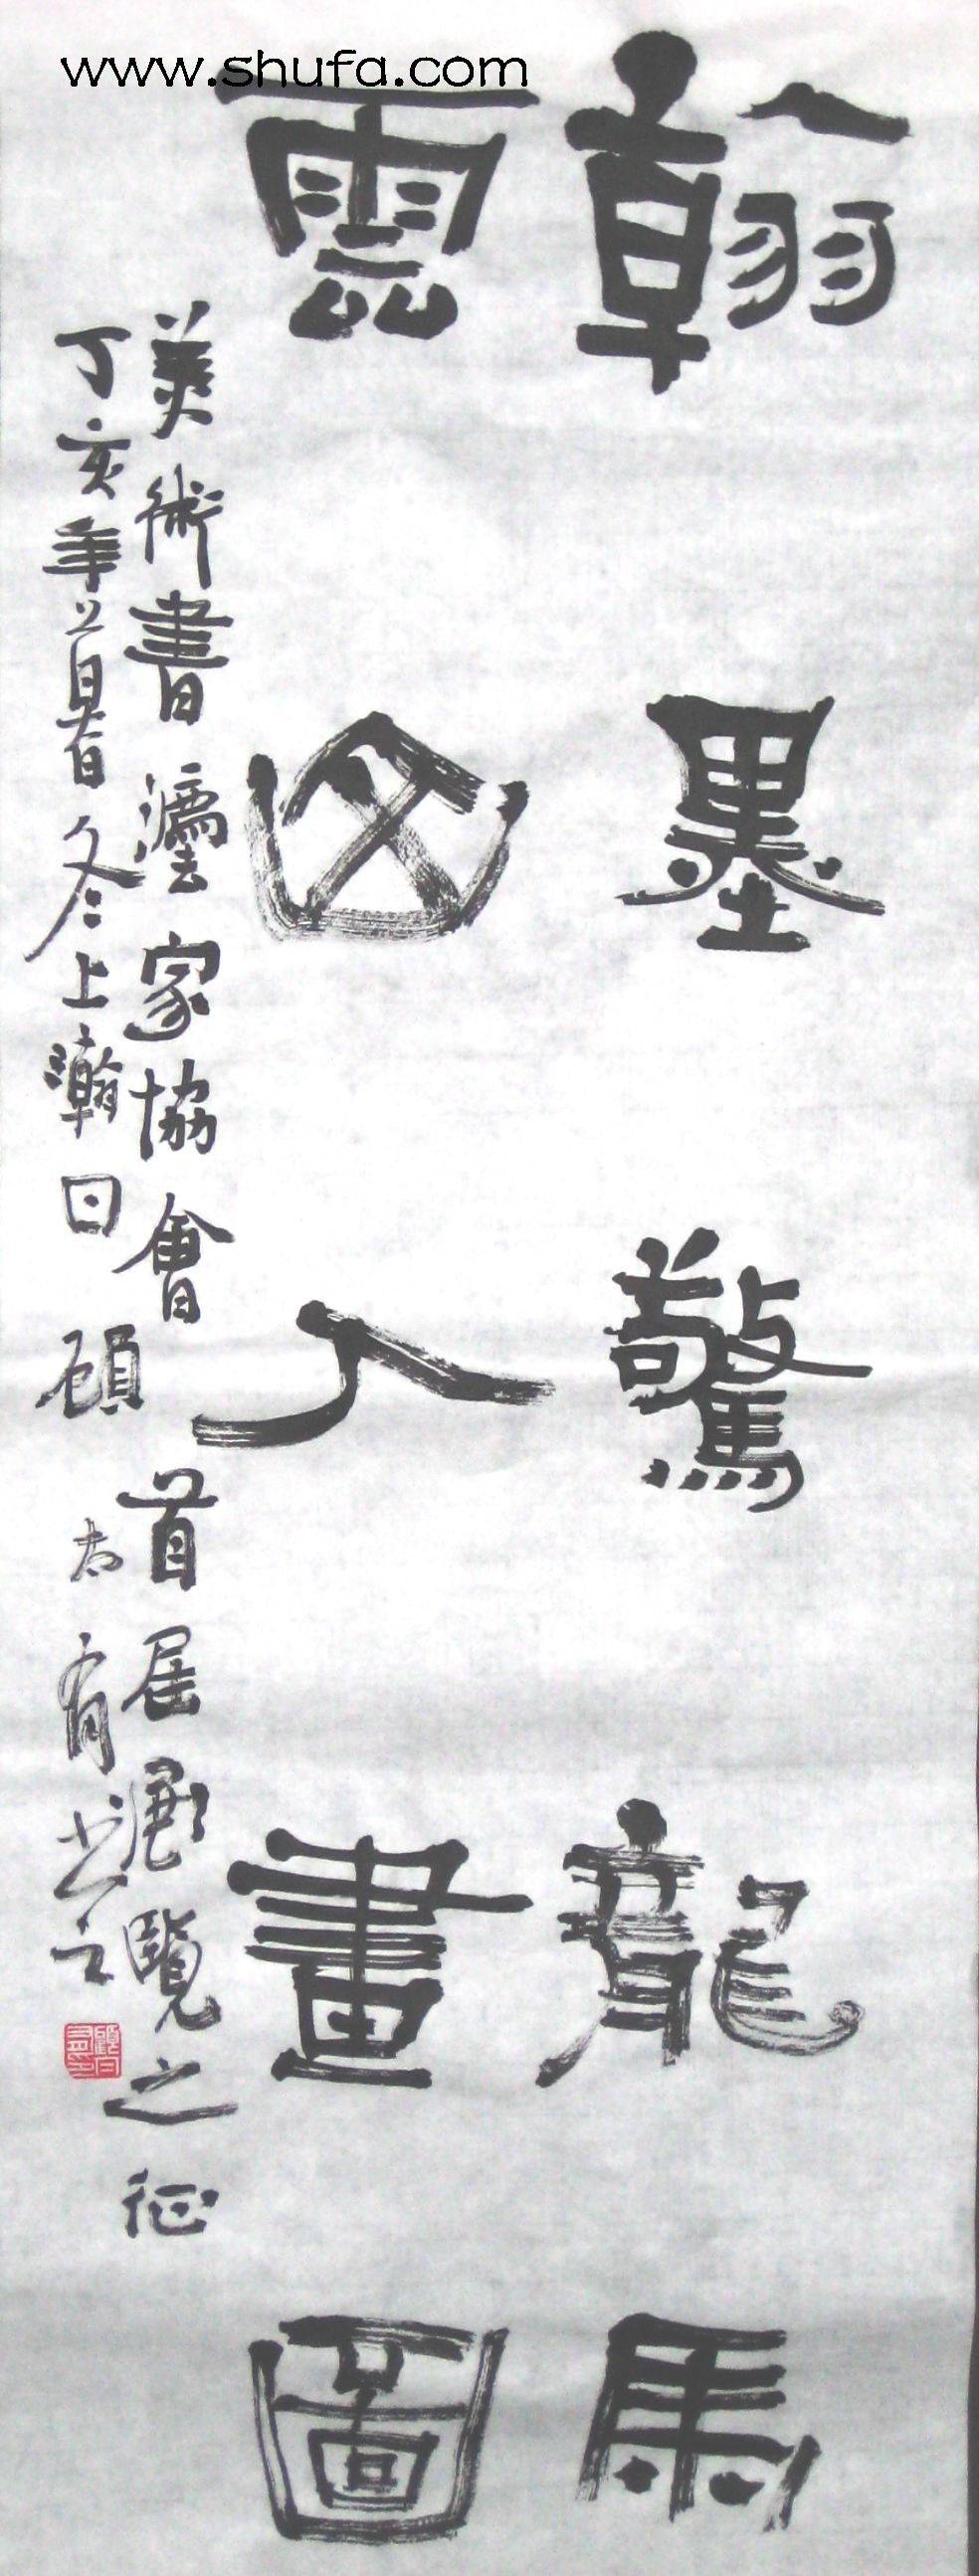 www.shufa.com
翰墨驚龍馬
雲山入畫圖
美術書灋家協會首届展覽之征
丁亥年暮冬上瀚日顧